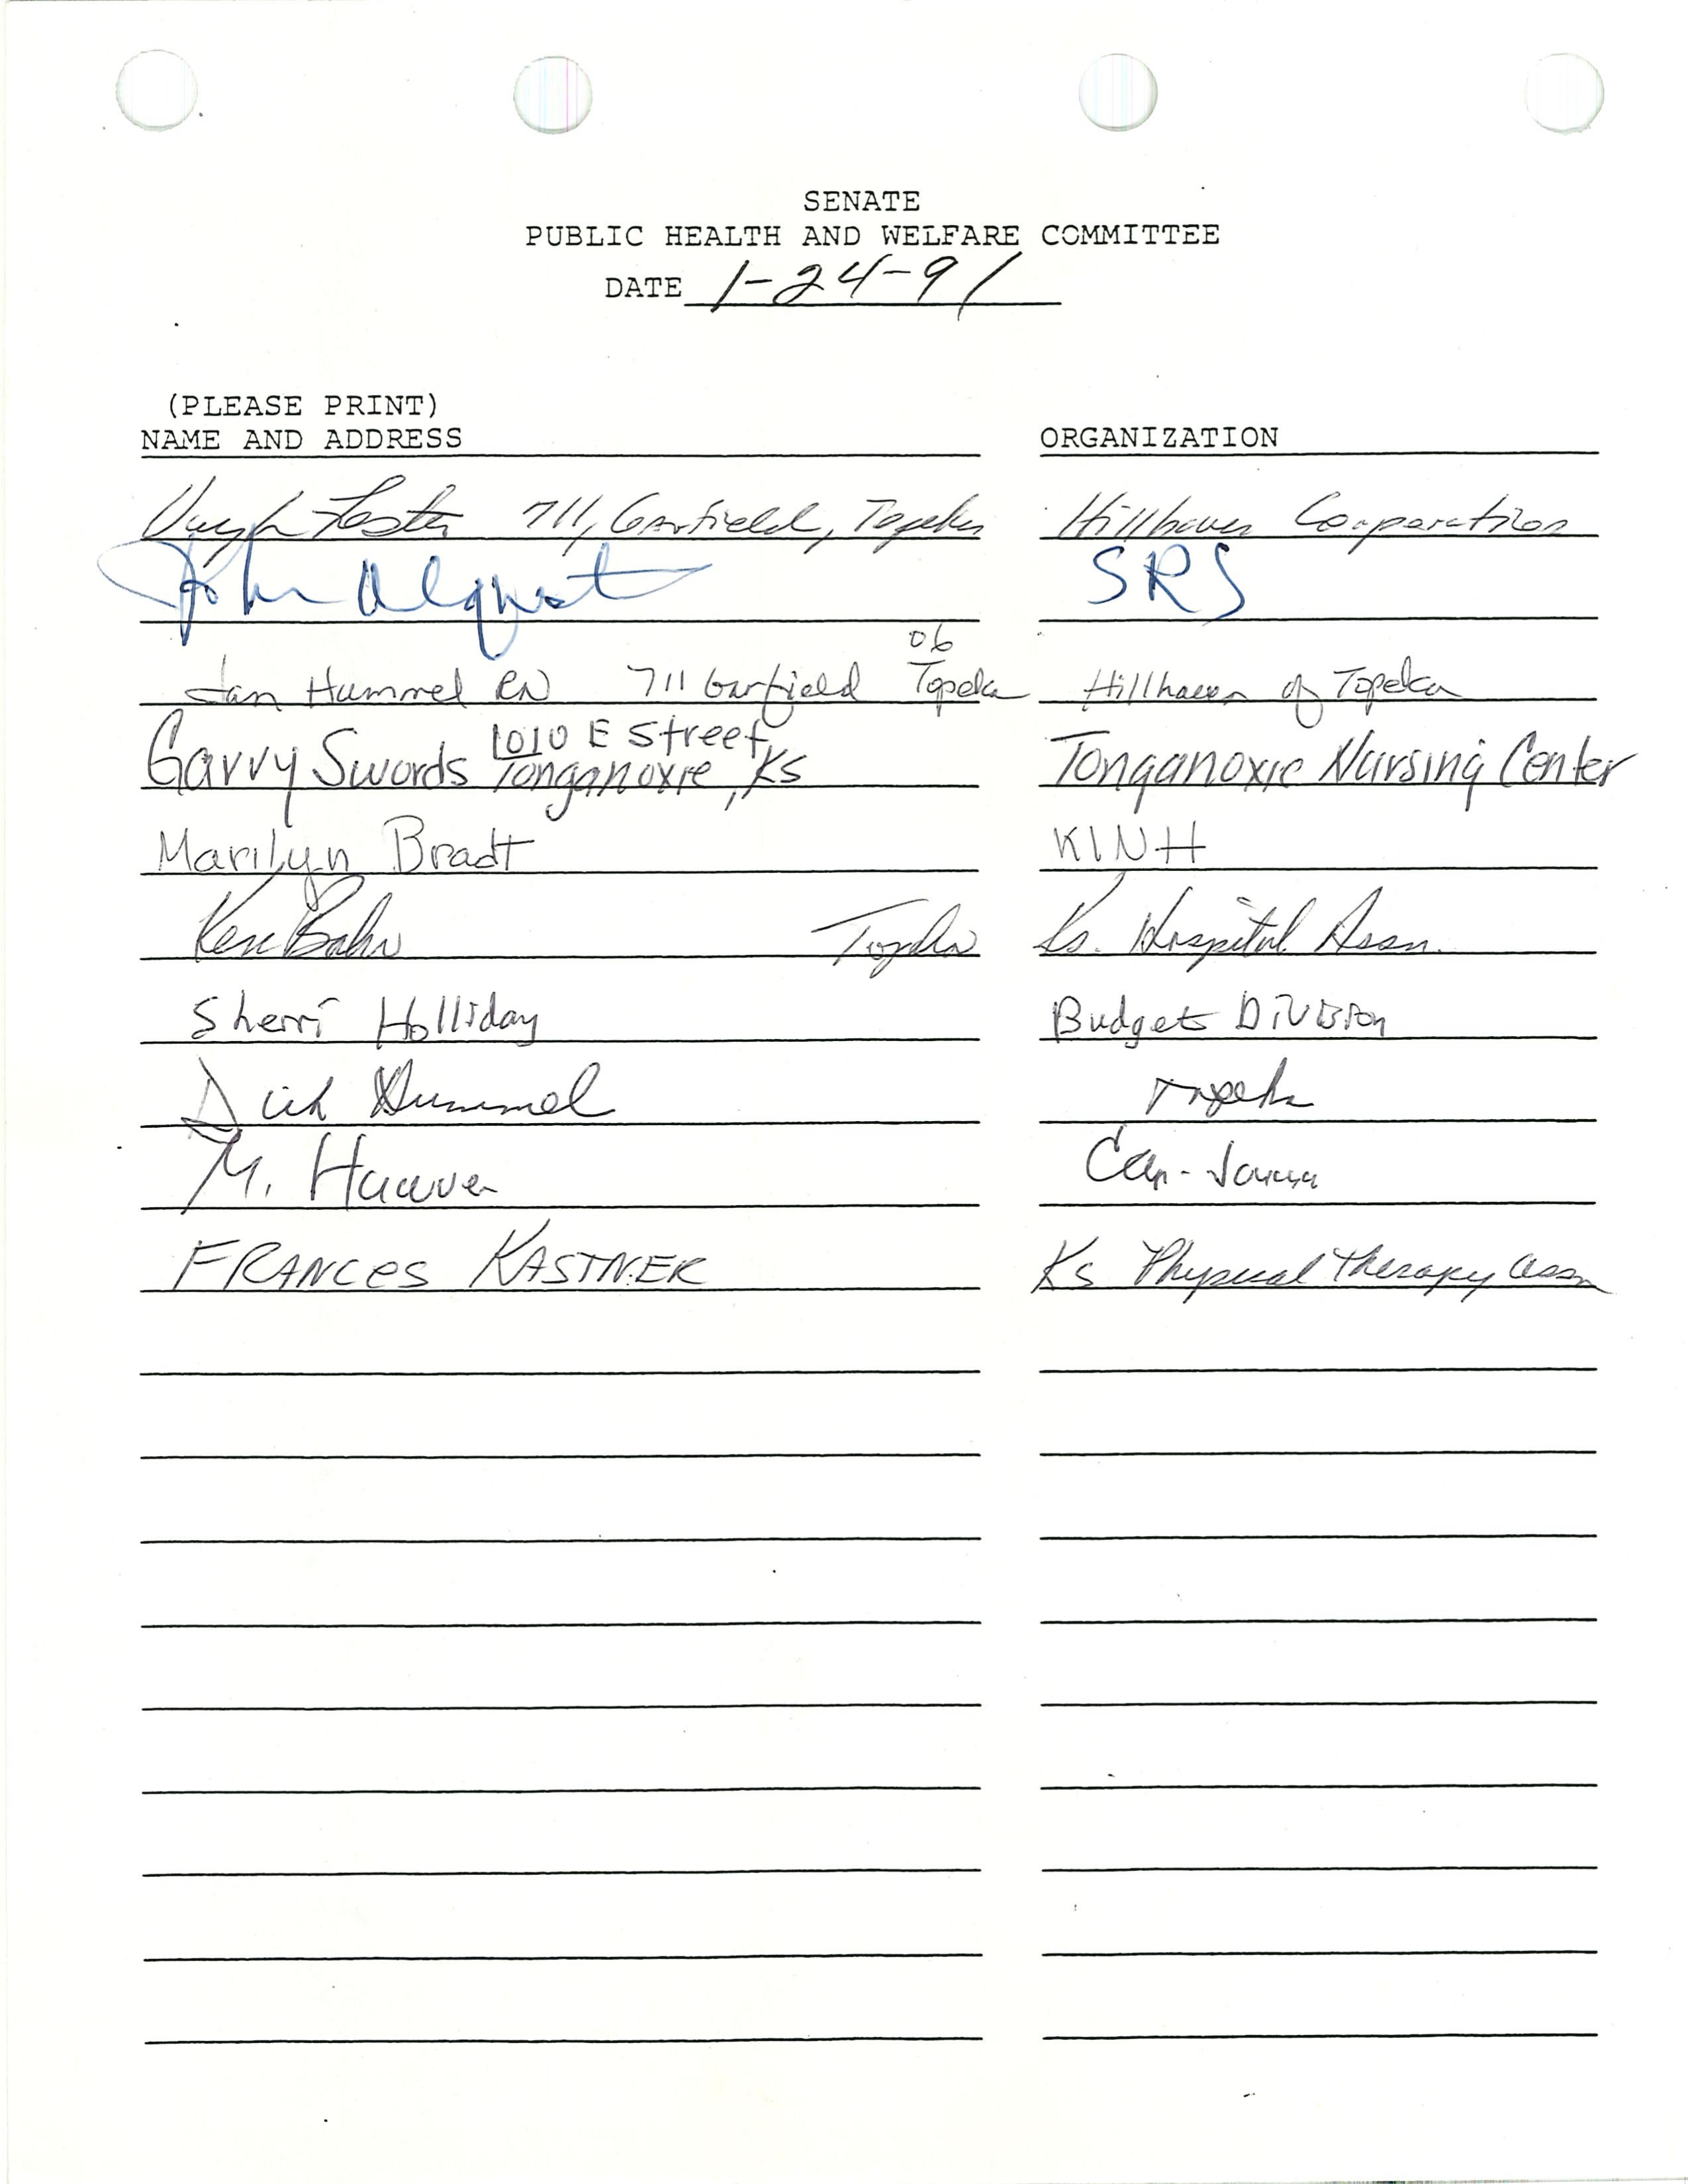 SENATE
PUBLIC HEALTH AND WELFARE COMMITTEE
DATE 1-24-91
(PLEASE PRINT)
NAME AND ADDRESS ORGANIZATION
711, Garfield, Topeka Hillhaven Corporation
John Alquest SRS
06
Jan Hummel RN 711 Garfield Topeka Hillhaven of Topeka
1010 E Street
Garry Swords Tonganoxie, KS Tonganoxie Nursing Center
Marilyn Bradt KINH
Ken Bahr Topeka Ks. Hospital Assn.
Sherri Holliday Budget Division
Dick Hummel Topeka
M. Hauver Cap-
FRANCES KASTNER Ks Physical Therapy Assn